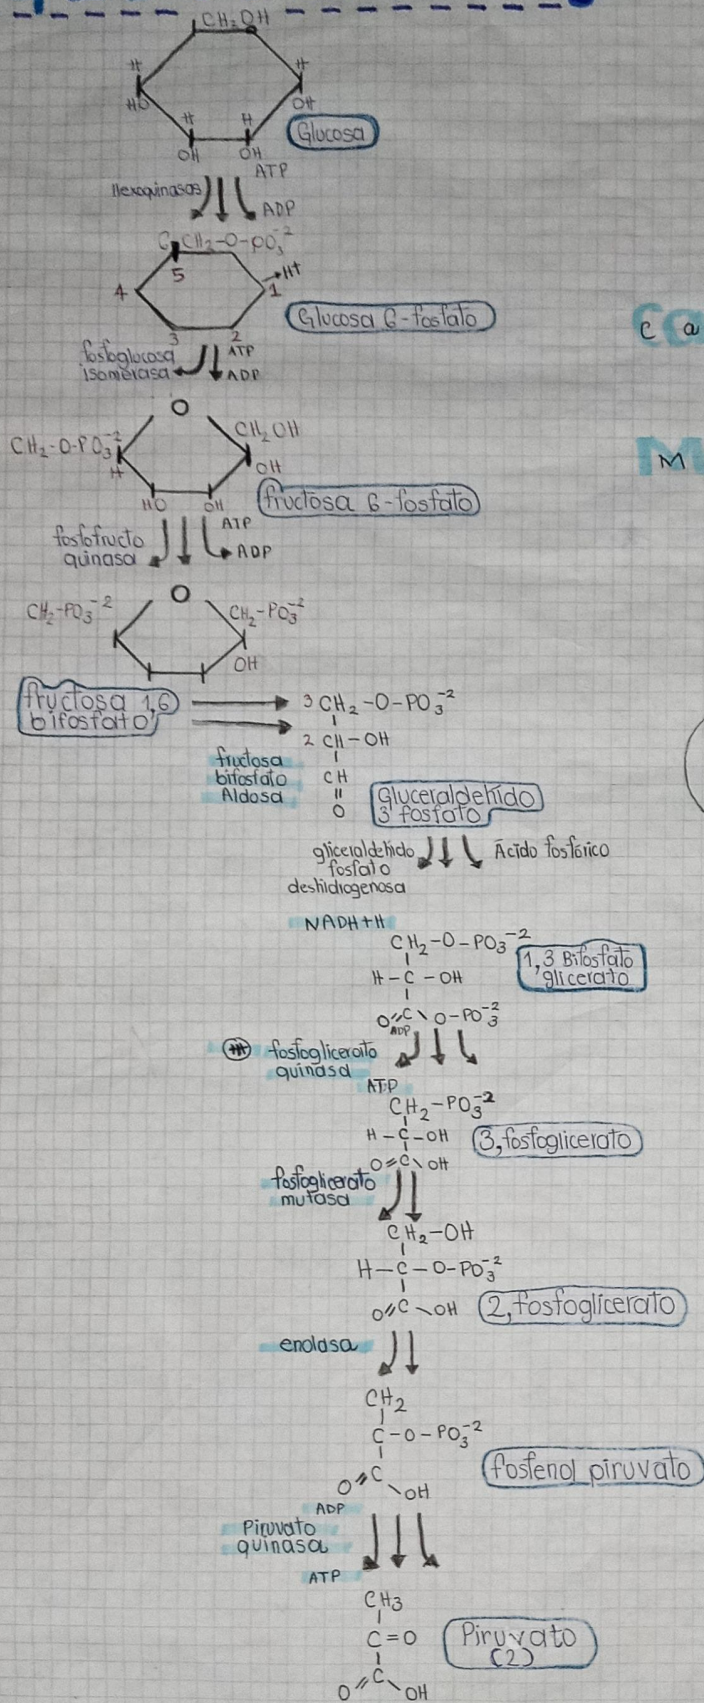 CH2OH
H
H
HO
OH
H
H
OH
OH
Glucosa
ATP
Hexoquinasas
ADP
CH2-O-PO3-2
5
H+
4
1
Glucosa 6-fosfato
3
2
fosfoglucosa
isomerasa
ATP
ADP
C a
O
CH2-O-PO3-2
CH2OH
H
OH
M
HO
OH
fructosa 6-fosfato
fosfofructo
quinasa
ATP
ADP
O
CH2-PO3-2
CH2-PO3-2
OH
fructosa 1,6
bifosfato
3 CH2-O-PO3-2
2 CH-OH
CH
O
fructosa
bifosfato
Aldosa
Gluceraldehido
3 fosfato
gliceraldehido
fosfato
deshidrogenosa
Ácido fosfórico
NADH+H
CH2-O-PO3-2
H-C-OH
O=C\O-PO3-2
1,3 Bifosfato
glicerato
ADP
fosfoglicerato
quinasa
ATP
CH2-PO3-2
H-C-OH
O=C\OH
3,fosfoglicerato
fosfoglicerato
mutasa
CH2-OH
H-C-O-PO3-2
O=C\OH
2,fosfoglicerato
enolasa
CH2
C-O-PO3-2
O=C\OH
fosfenol piruvato
ADP
Piruvato
quinasa
ATP
CH3
C=O
O=C\OH
Piruvato
(2)